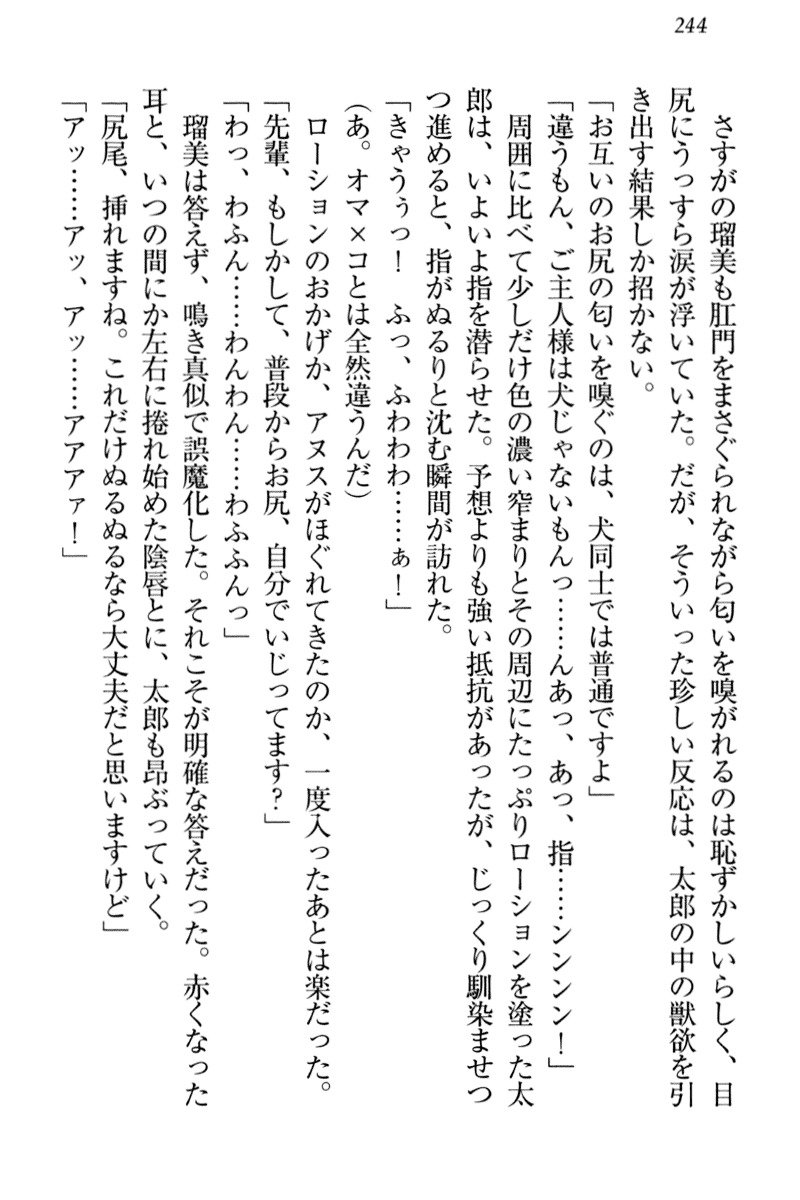 244
さすがの瑠美も肛門をまさぐられながら匂いを嗅がれるのは恥ずかしいらしく、目
尻にうっすら涙が浮いていた。だが、そういった珍しい反応は、太郎の中の獣欲を引
き出す結果しか招かない。
「お互いのお尻の匂いを嗅ぐのは、犬同士では普通ですよ」
「違うもん、ご主人様は犬じゃないもんっ……んあっ、あっ、指……ンンンン！」
周囲に比べて少しだけ色の濃い窄まりとその周辺にたっぷりローションを塗った太
郎は、いよいよ指を潜らせた。予想よりも強い抵抗があったが、じっくり馴染ませつ
つ進めると、指がぬるりと沈む瞬間が訪れた。
「きゃうぅっ！　ふっ、ふわわわ……ぁ！」
（あ。オマ×コとは全然違うんだ）
ローションのおかげか、アヌスがほぐれてきたのか、一度入ったあとは楽だった。
「先輩、もしかして、普段からお尻、自分でいじってます？」
「わっ、わふん……わんわん……わふふんっ」
瑠美は答えず、鳴き真似で誤魔化した。それこそが明確な答えだった。赤くなった
耳と、いつの間にか左右に捲れ始めた陰唇とに、太郎も昂ぶっていく。
「尻尾、挿れますね。これだけぬるぬるなら大丈夫だと思いますけど」
「アッ……アッ、アッ……アアアァ！」